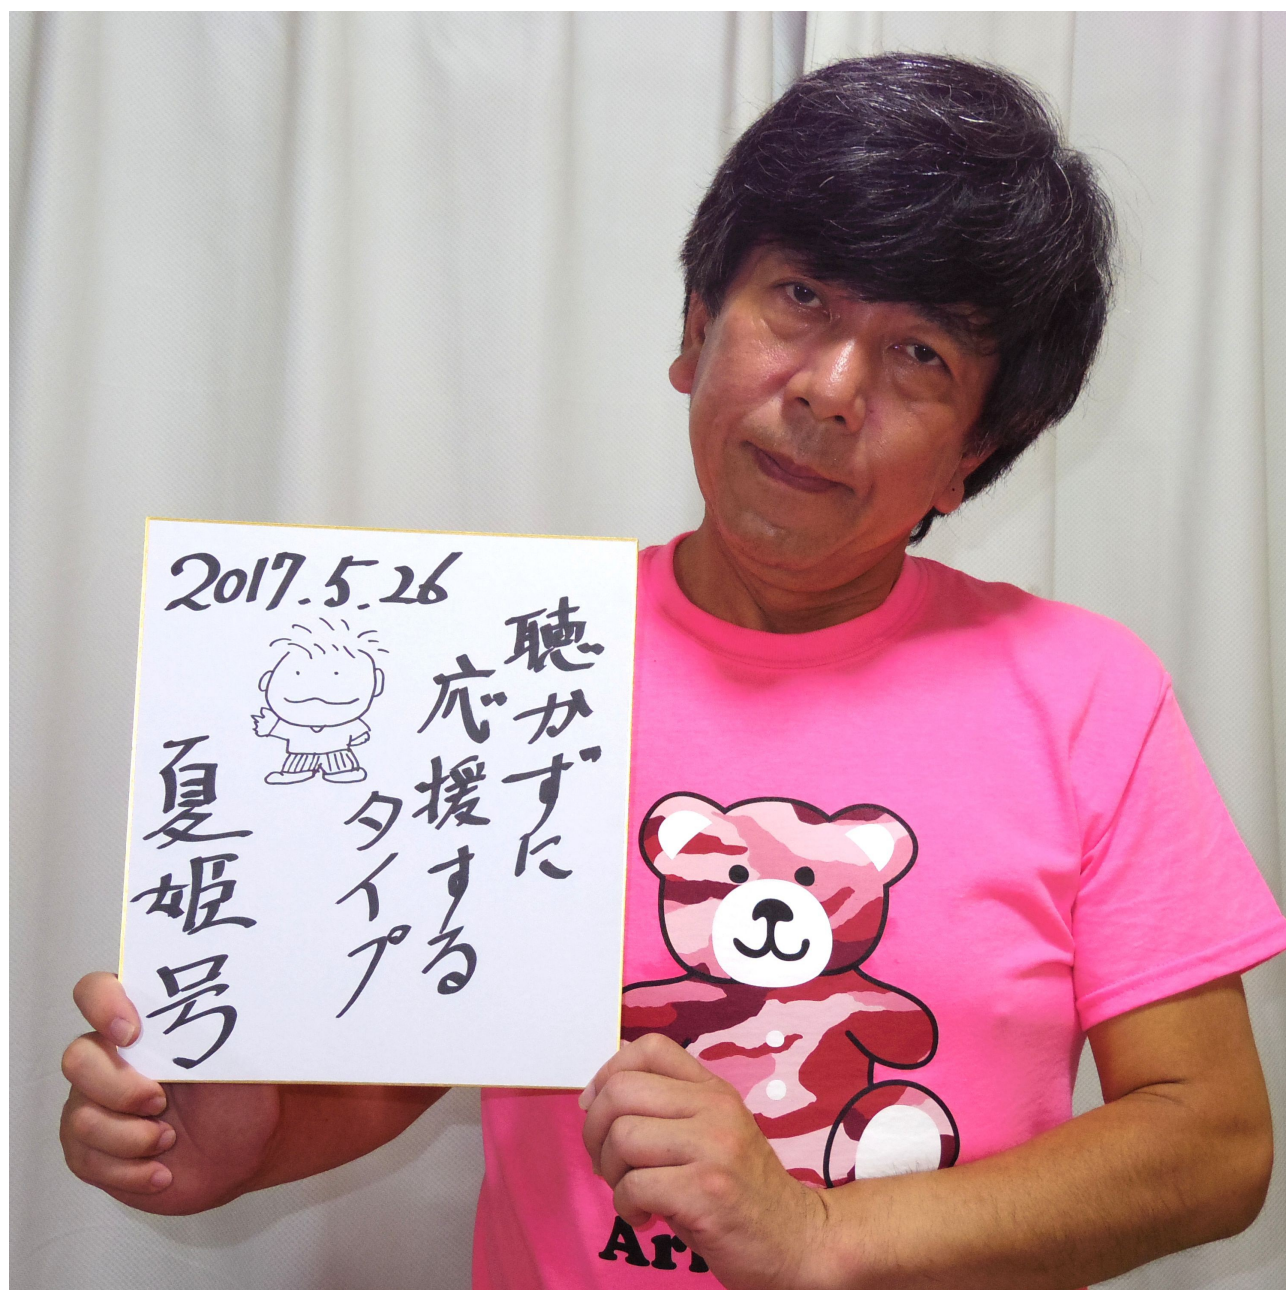 2017.5.26
聴かずに
応援する
タイプ
夏姫号
Ar